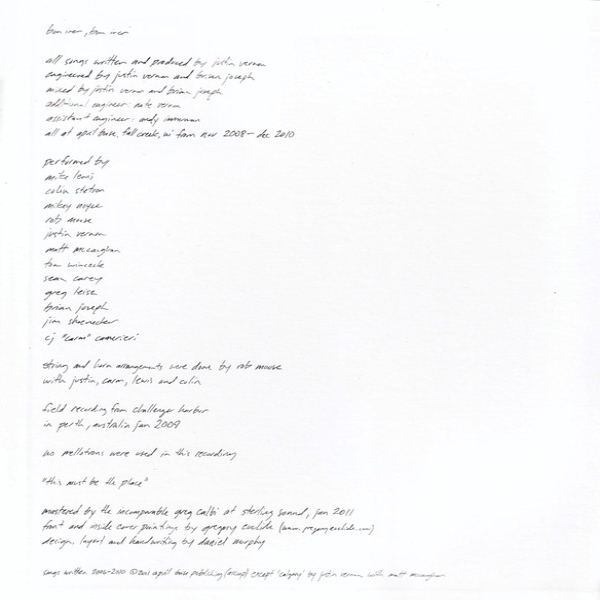 bon iver, bon iver
all songs written and produced by justin vernon
engineered by justin vernon and brian joseph
mixed by justin vernon and brian joseph
additional engineer: nate vernon
assistant engineer: andy
all at april base, fall creek, wi from nov 2008 - dec 2010
performed by
mike lewis
colin stetson
mikey noyce
rob moose
justin vernon
matt mccaughan
tom wincek
sean carey
greg leisz
brian joseph
jim shoenecker
cj "carm" camerieri
string and horn arrangements were done by rob moose
with justin, carm, lewis and colin
field recording from challenger harbor
in perth, australia jan 2009
no mellotrons were used in this recording
"this must be the place"
mastered by the incomparable greg calbi at sterling sound, jan 2011
front and inside cover paintings by gregory euclide (www.gregoryeuclide.com)
design, layout and handwriting by daniel murphy
songs written 2006-2010 ©2011 april base publishing (ascap) except 'calgary' by justin vernon with matt mccaughan